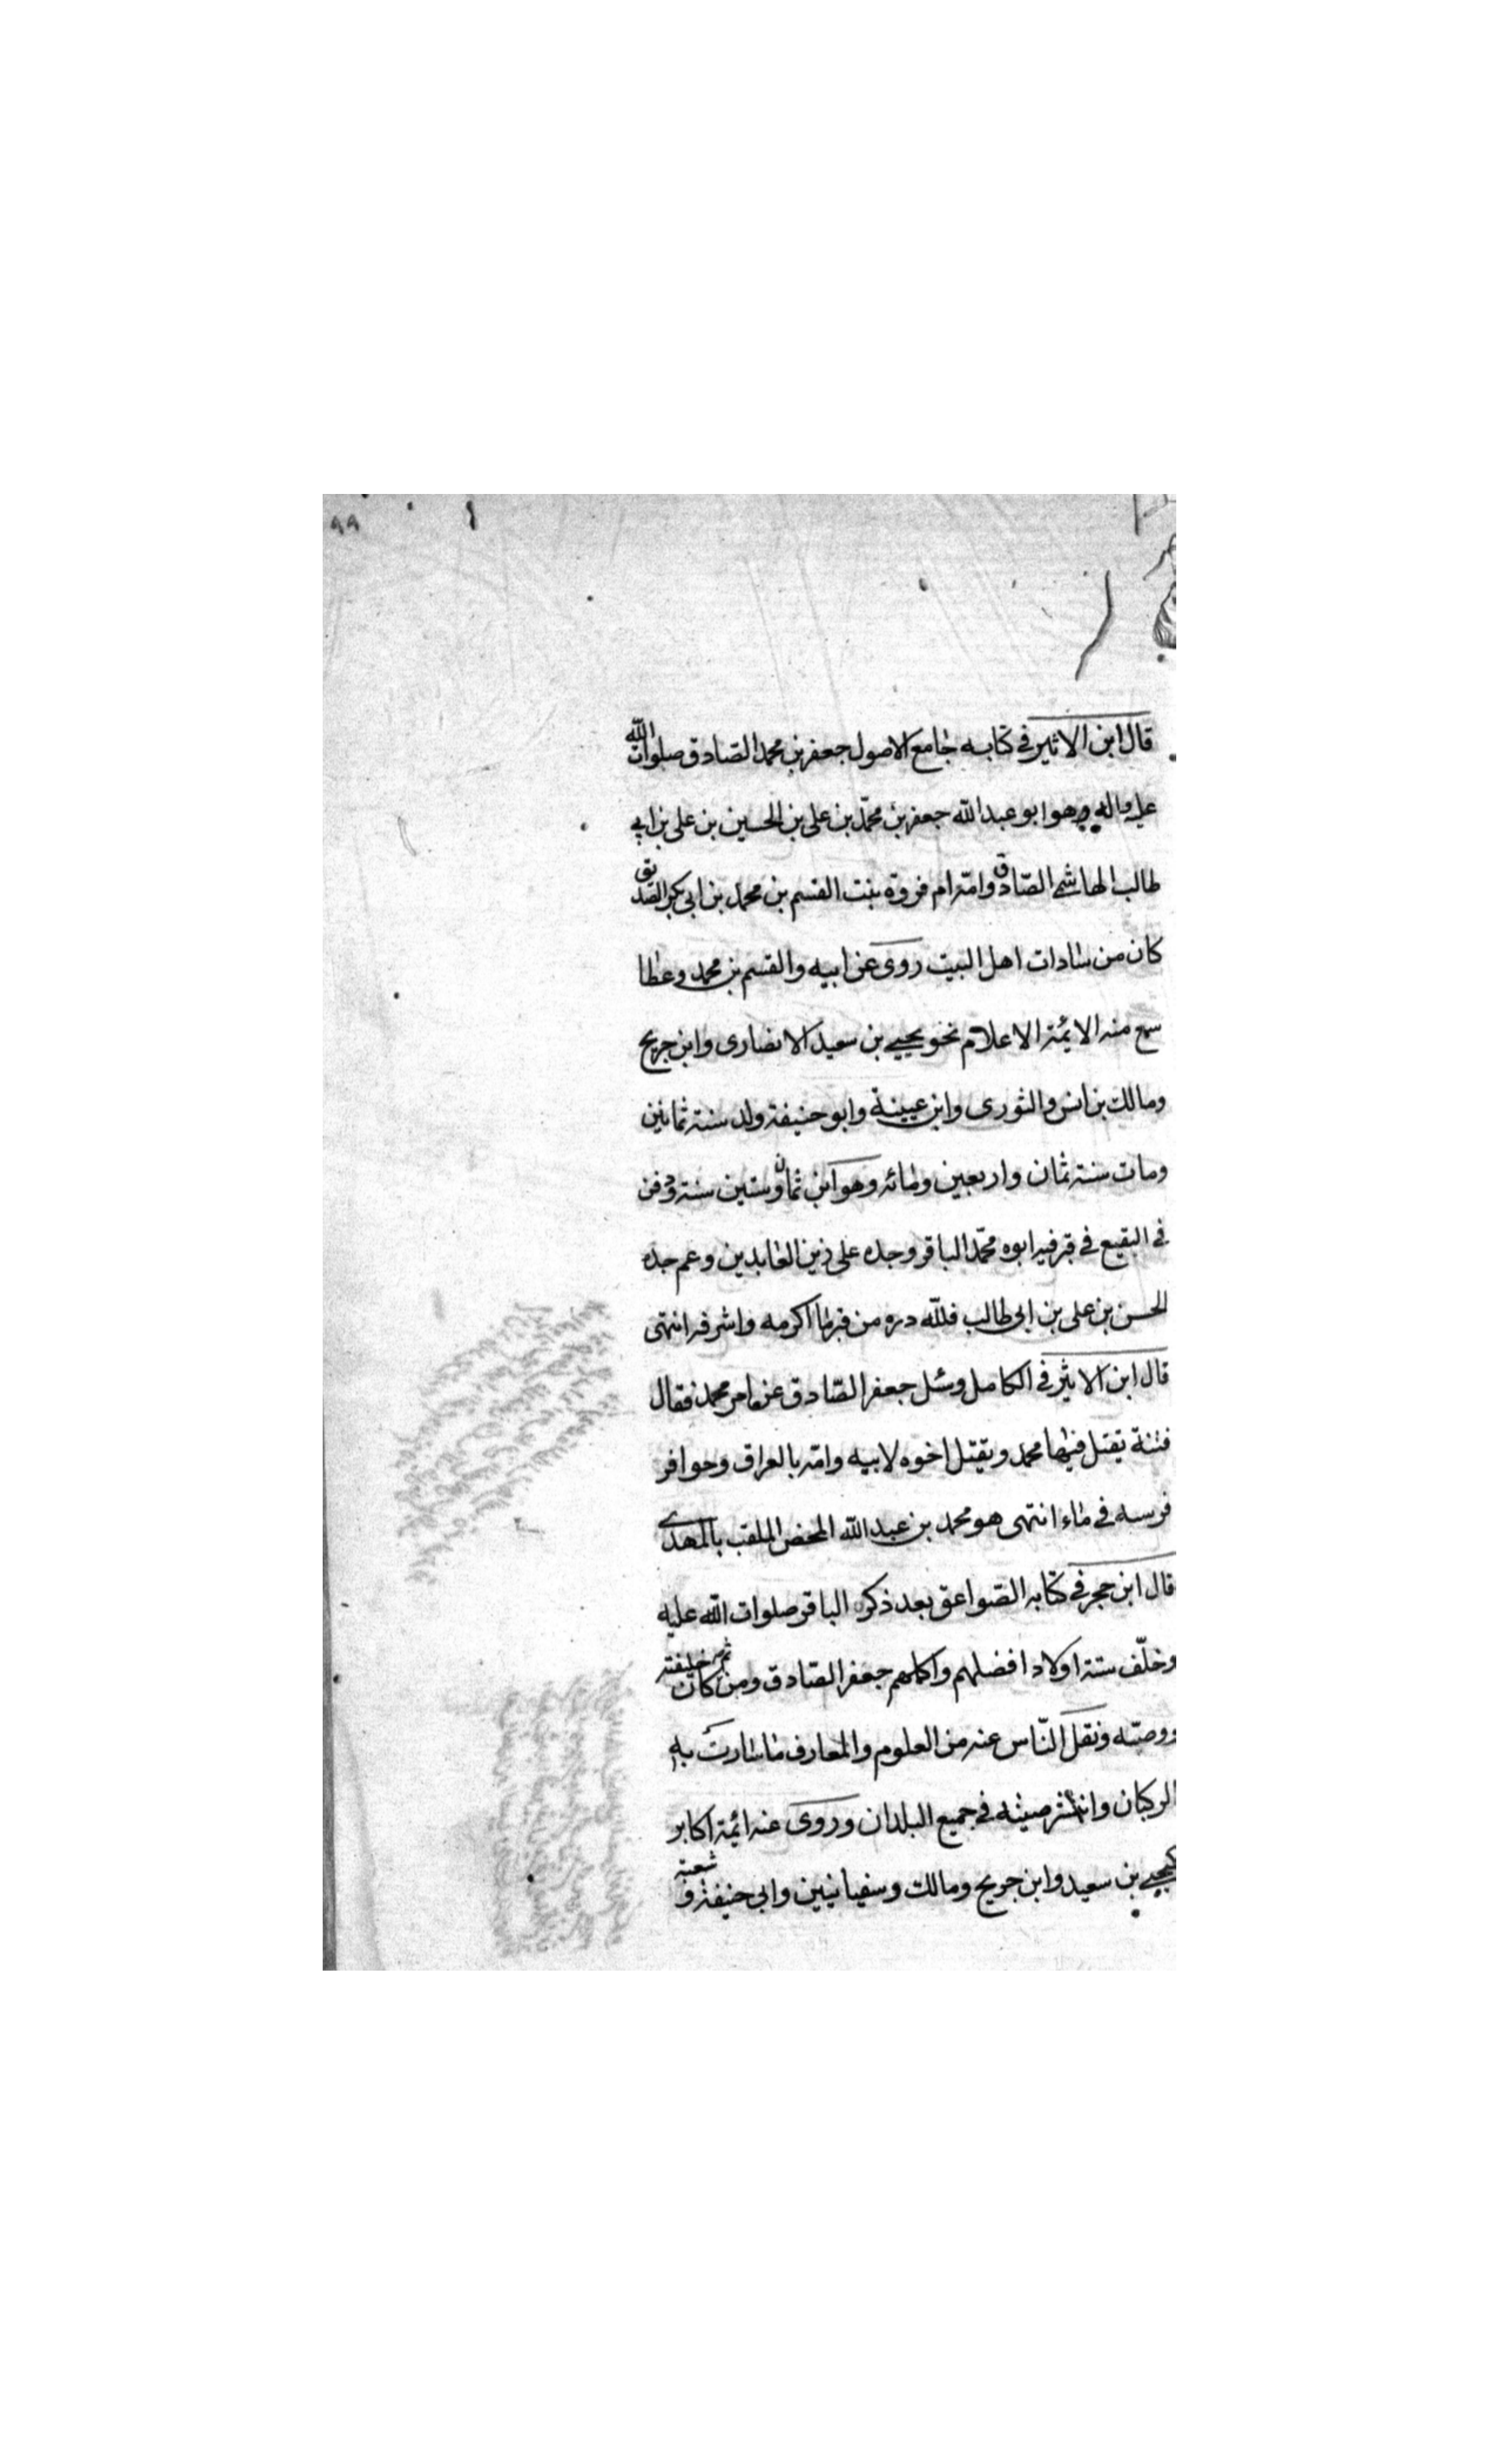 ٩٩
قال ابن الاثير في كتابه جامع الاصول جعفر بن محمد الصّادق صلوات الله
عليه واله وهو ابو عبد الله جعفر بن محمّد بن على بن الحسين بن على بن ابي
طالب الهاشمى الصّادق وامّه ام فروة بنت القسم بن محمد بن ابى بكر الصديق
كان من سادات اهل البيت روى عن ابيه والقسم بن محمد وعطا
سمع منه الايمّة الاعلام نحو يحيي بن سعيد الانصارى وابن جريج
ومالك بن انس والثورى وابن عيينة وابو حنيفة ولد سنة ثمانين
ومات سنة ثمان واربعين ومائه وهو ابن ثمان وستين سنة ودفن
في البقيع في قبر فيه ابوه محمّد الباقر وجده على زين العابدين وعم جده
الحسن بن على بن ابى طالب فللّه دره من قبر ما اكرمه واشرفه انتهى
قال ابن الاثير في الكامل وسئل جعفر الصّادق عن امر محمد فقال
فتنة يقتل فيها محمد ويقتل اخوه لابيه وامّه بالعراق وحوافر
فرسه في ماء انتهى هو محمد بن عبد الله المحض الملقب بالمهدى
قال ابن حجر في كتابه الصّواعق بعد ذكر الباقر صلوات الله عليه
وخلّف ستة اولاد افضلهم واكملهم جعفر الصّادق ومن ثم كان خليفته
ووصيّه ونقل النّاس عنه من العلوم والمعارف ما سارت به
الركبان وانتشر صيته في جميع البلدان وروى عنه ائمة اكابر
كيحيي بن سعيد وابن جريج ومالك وسفيانيين وابى حنيفة وشعبة